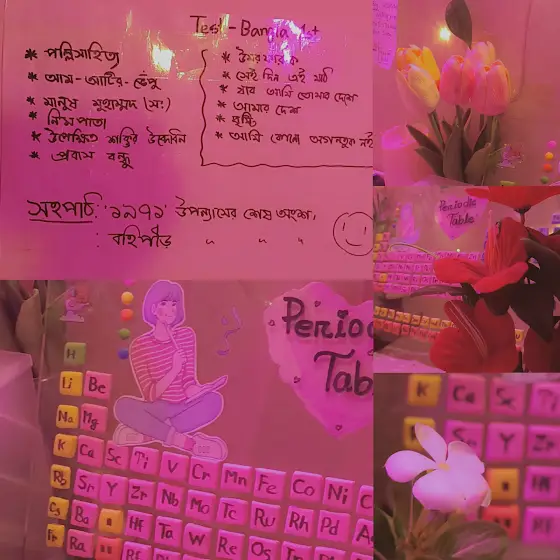 Test - Bangla 1st
* পল্লিসাহিত্য
* আম-আঁটির-ভেঁপু
* মানুষ মুহাম্মদ (সঃ)
* নিমগাছ
* উপেক্ষিত শক্তির উদ্বোধন
* প্রবাস বন্ধু
* সেই দিন এই মাঠ
* যাব আমি তোমার দেশে
* আমার দেশ
* বৃষ্টি
* আমি কোনো আগন্তুক নই
সহপাঠ: '১৯৭১' উপন্যাসের শেষ অংশ।
: বহিপীর " " "
Periodic
Table
Perio
Tab
H
Li Be
Na Mg
K Ca Sc Ti V Cr Mn Fe Co Ni C
Rb Sr Y Zr Nb Mo Tc Ru Rh Pd A
Cs Ba Hf Ta W Re Os
Fr Ra Rf
K Ca Sc Ti
Sr Y Z